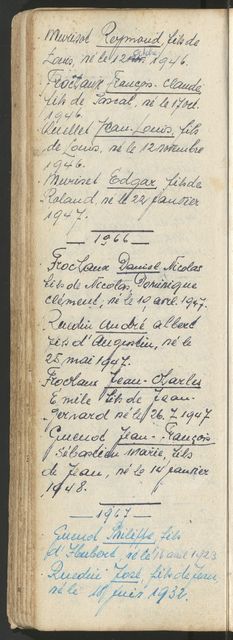 Murisot Raymond, fils de
Louis, né le 12 octobre 1946.
Frochaux François-Claude,
fils de Pascal, né le 17 oct.
1946.
Quellet Jean-Louis, fils
de Louis, né le 12 novembre
1946.
Muriset Edgar, fils de
Roland, né le 22 janvier
1947.
1966
Frochaux Daniel, Nicolas
fils de Nicolas, Dominique
Clément, né le 10, avril. 1947.
Ruedin André albert
fils d'Augustin, né le
25, mai 1947.
Frochaux Jean-Charles
Emile fils de Jean-
Bernard né le 26.7.1947
Guenot Jean-François
Sébastien-Marie, fils
de Jean, né le 14 janvier
1948.
1967
Guenot Philippe, fils
d'Humbert, né le avril 1923
Ruedin José, fils de
né le 18 juin 1932.